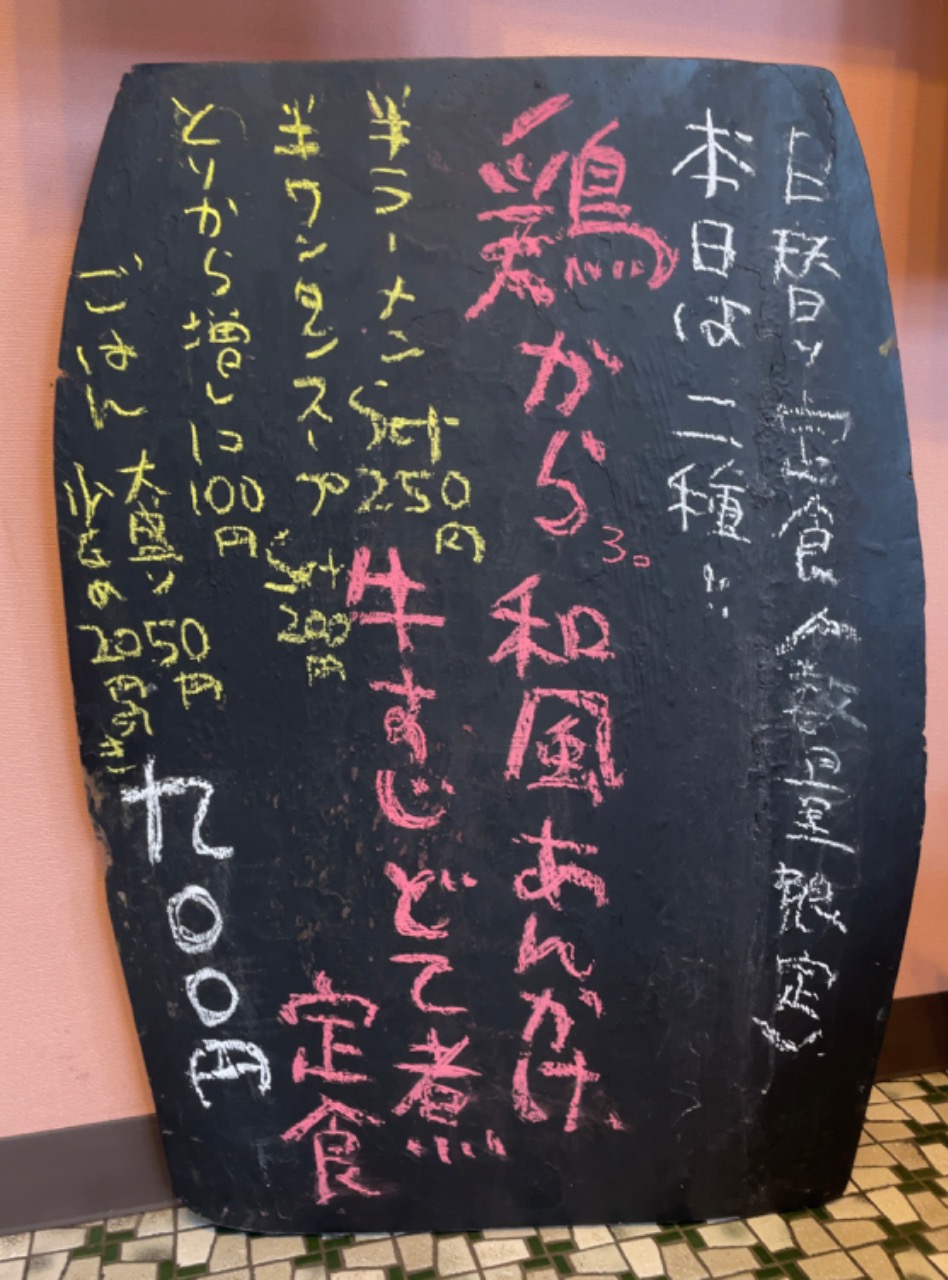 日替り定食(数量限定)
本日は二種‼
鶏から3コ 和風あんかけ
牛すじどて煮
定食
半ラーメンSet 250円
半ワンタンスープSet 200円
とりから増し1コ100円
ごはん 大盛り 50円
少なめ 20円引き
九〇〇円